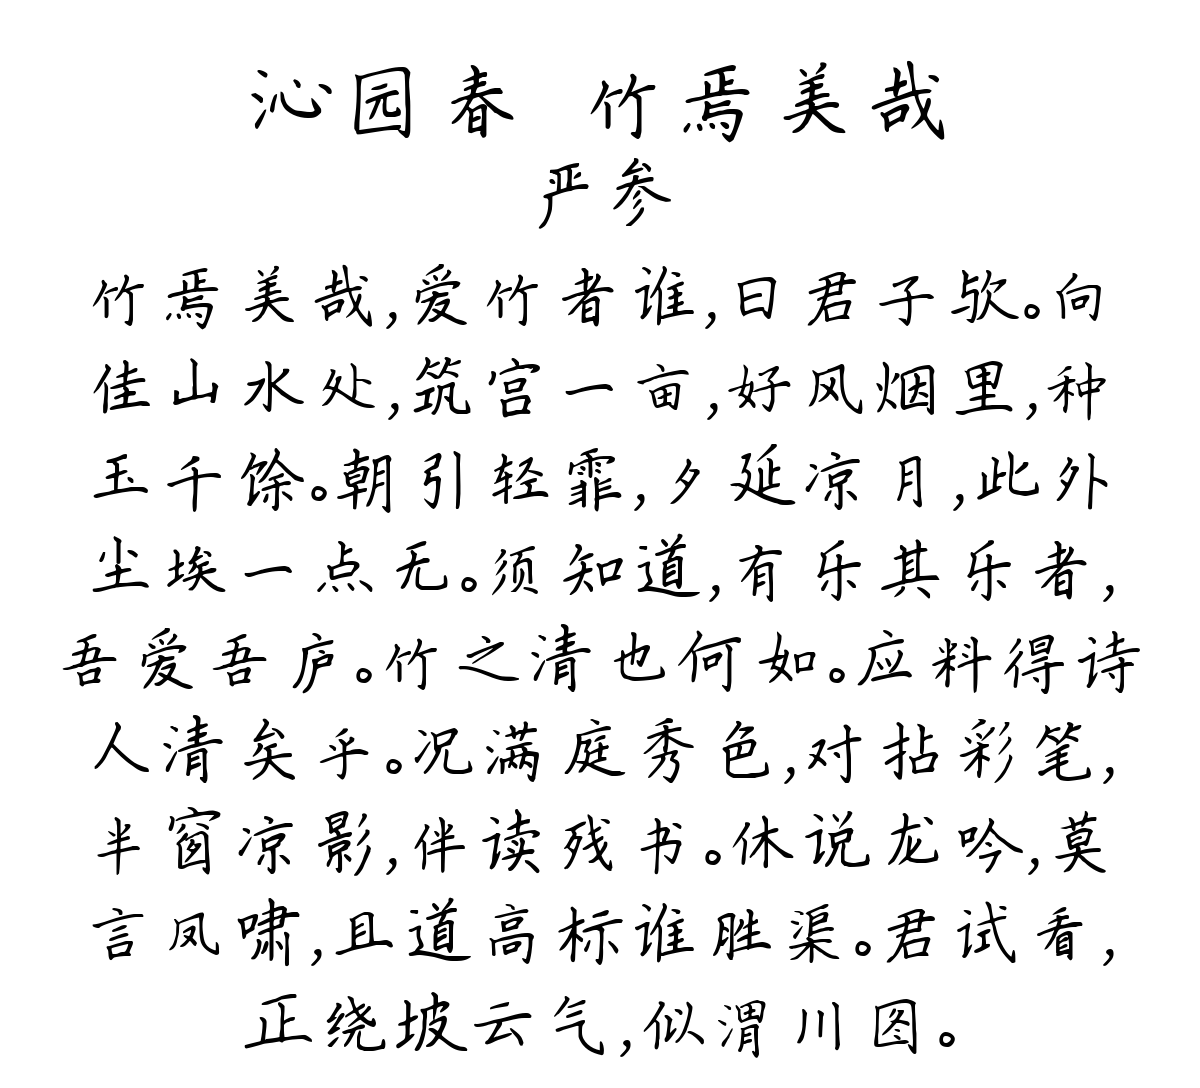 沁园春 竹焉美哉
严参
竹焉美哉,爱竹者谁,曰君子欤。向
佳山水处,筑宫一亩,好风烟里,种
玉千馀。朝引轻霏,夕延凉月,此外
尘埃一点无。须知道,有乐其乐者,
吾爱吾庐。竹之清也何如。应料得诗
人清矣乎。况满庭秀色,对拈彩笔,
半窗凉影,伴读残书。休说龙吟,莫
言凤啸,且道高标谁胜渠。君试看,
正绕坡云气,似渭川图。